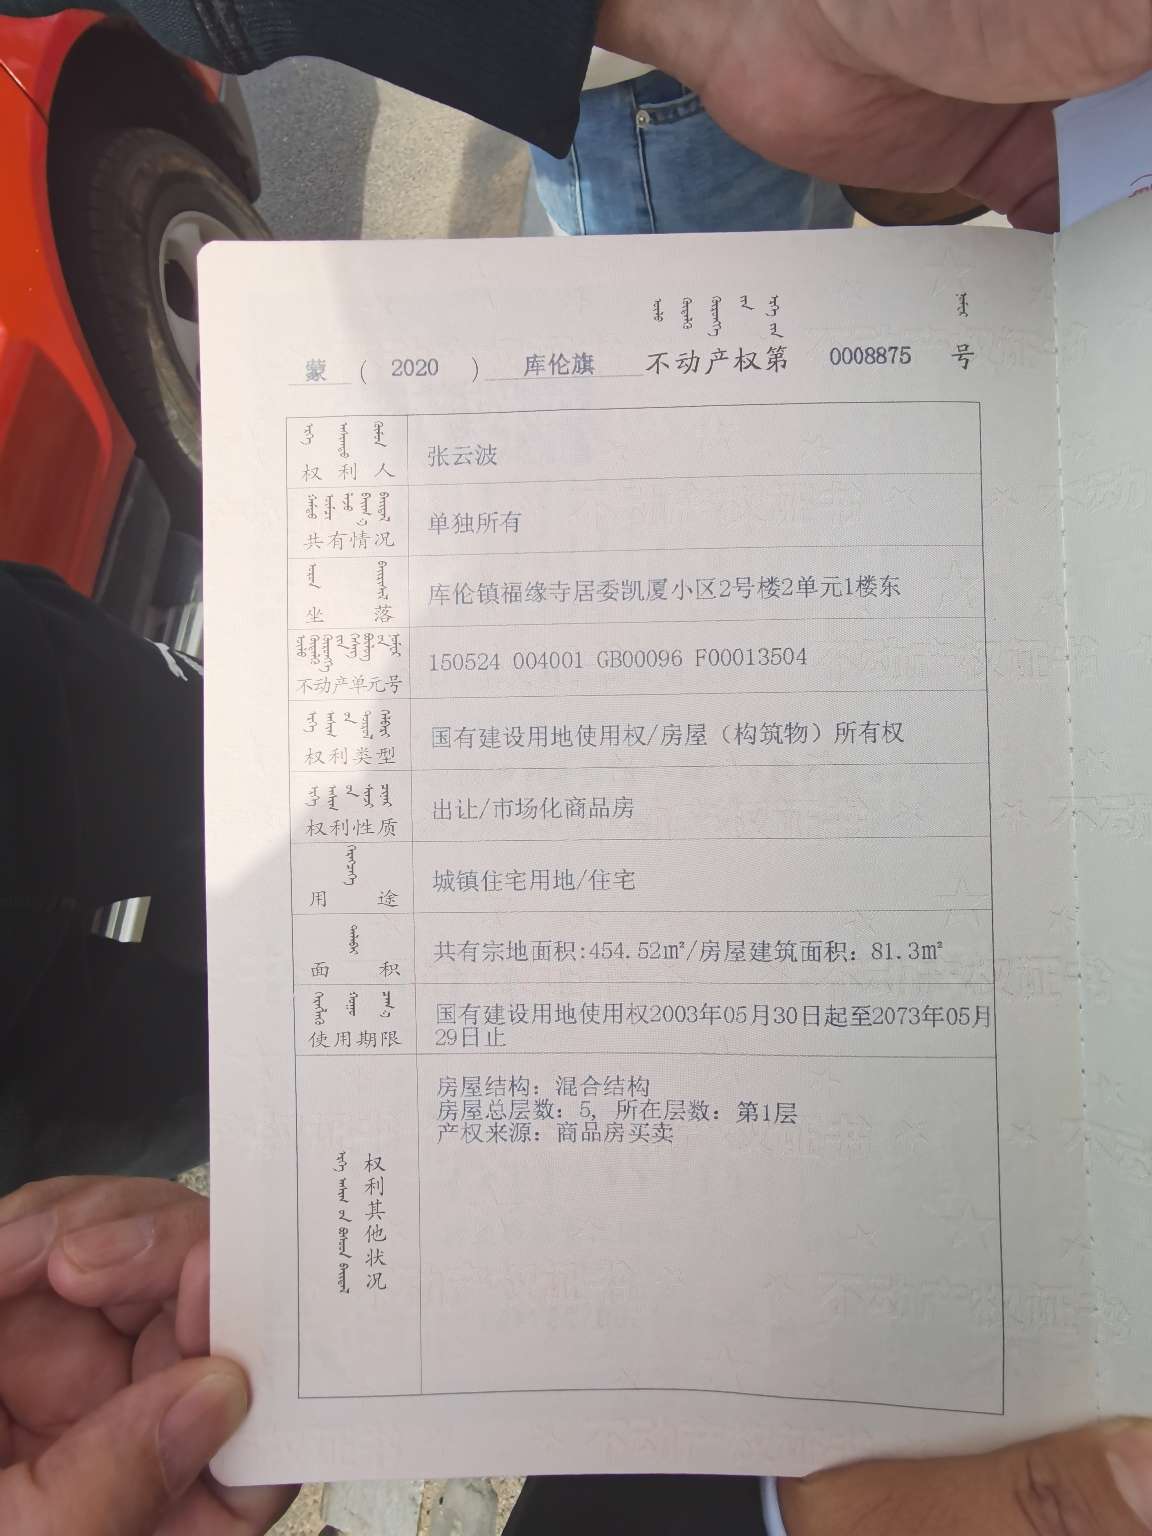 蒙（ 2020 ）库伦旗 不动产权第 0008875 号
权利人 张云波
共有情况 单独所有
坐落 库伦镇福缘寺居委凯厦小区2号楼2单元1楼东
不动产单元号 150524 004001 GB00096 F00013504
权利类型 国有建设用地使用权/房屋（构筑物）所有权
权利性质 出让/市场化商品房
用途 城镇住宅用地/住宅
面积 共有宗地面积:454.52㎡/房屋建筑面积：81.3㎡
使用期限 国有建设用地使用权2003年05月30日起至2073年05月
29日止
权利其他状况
房屋结构：混合结构
房屋总层数：5, 所在层数：第1层
产权来源：商品房买卖